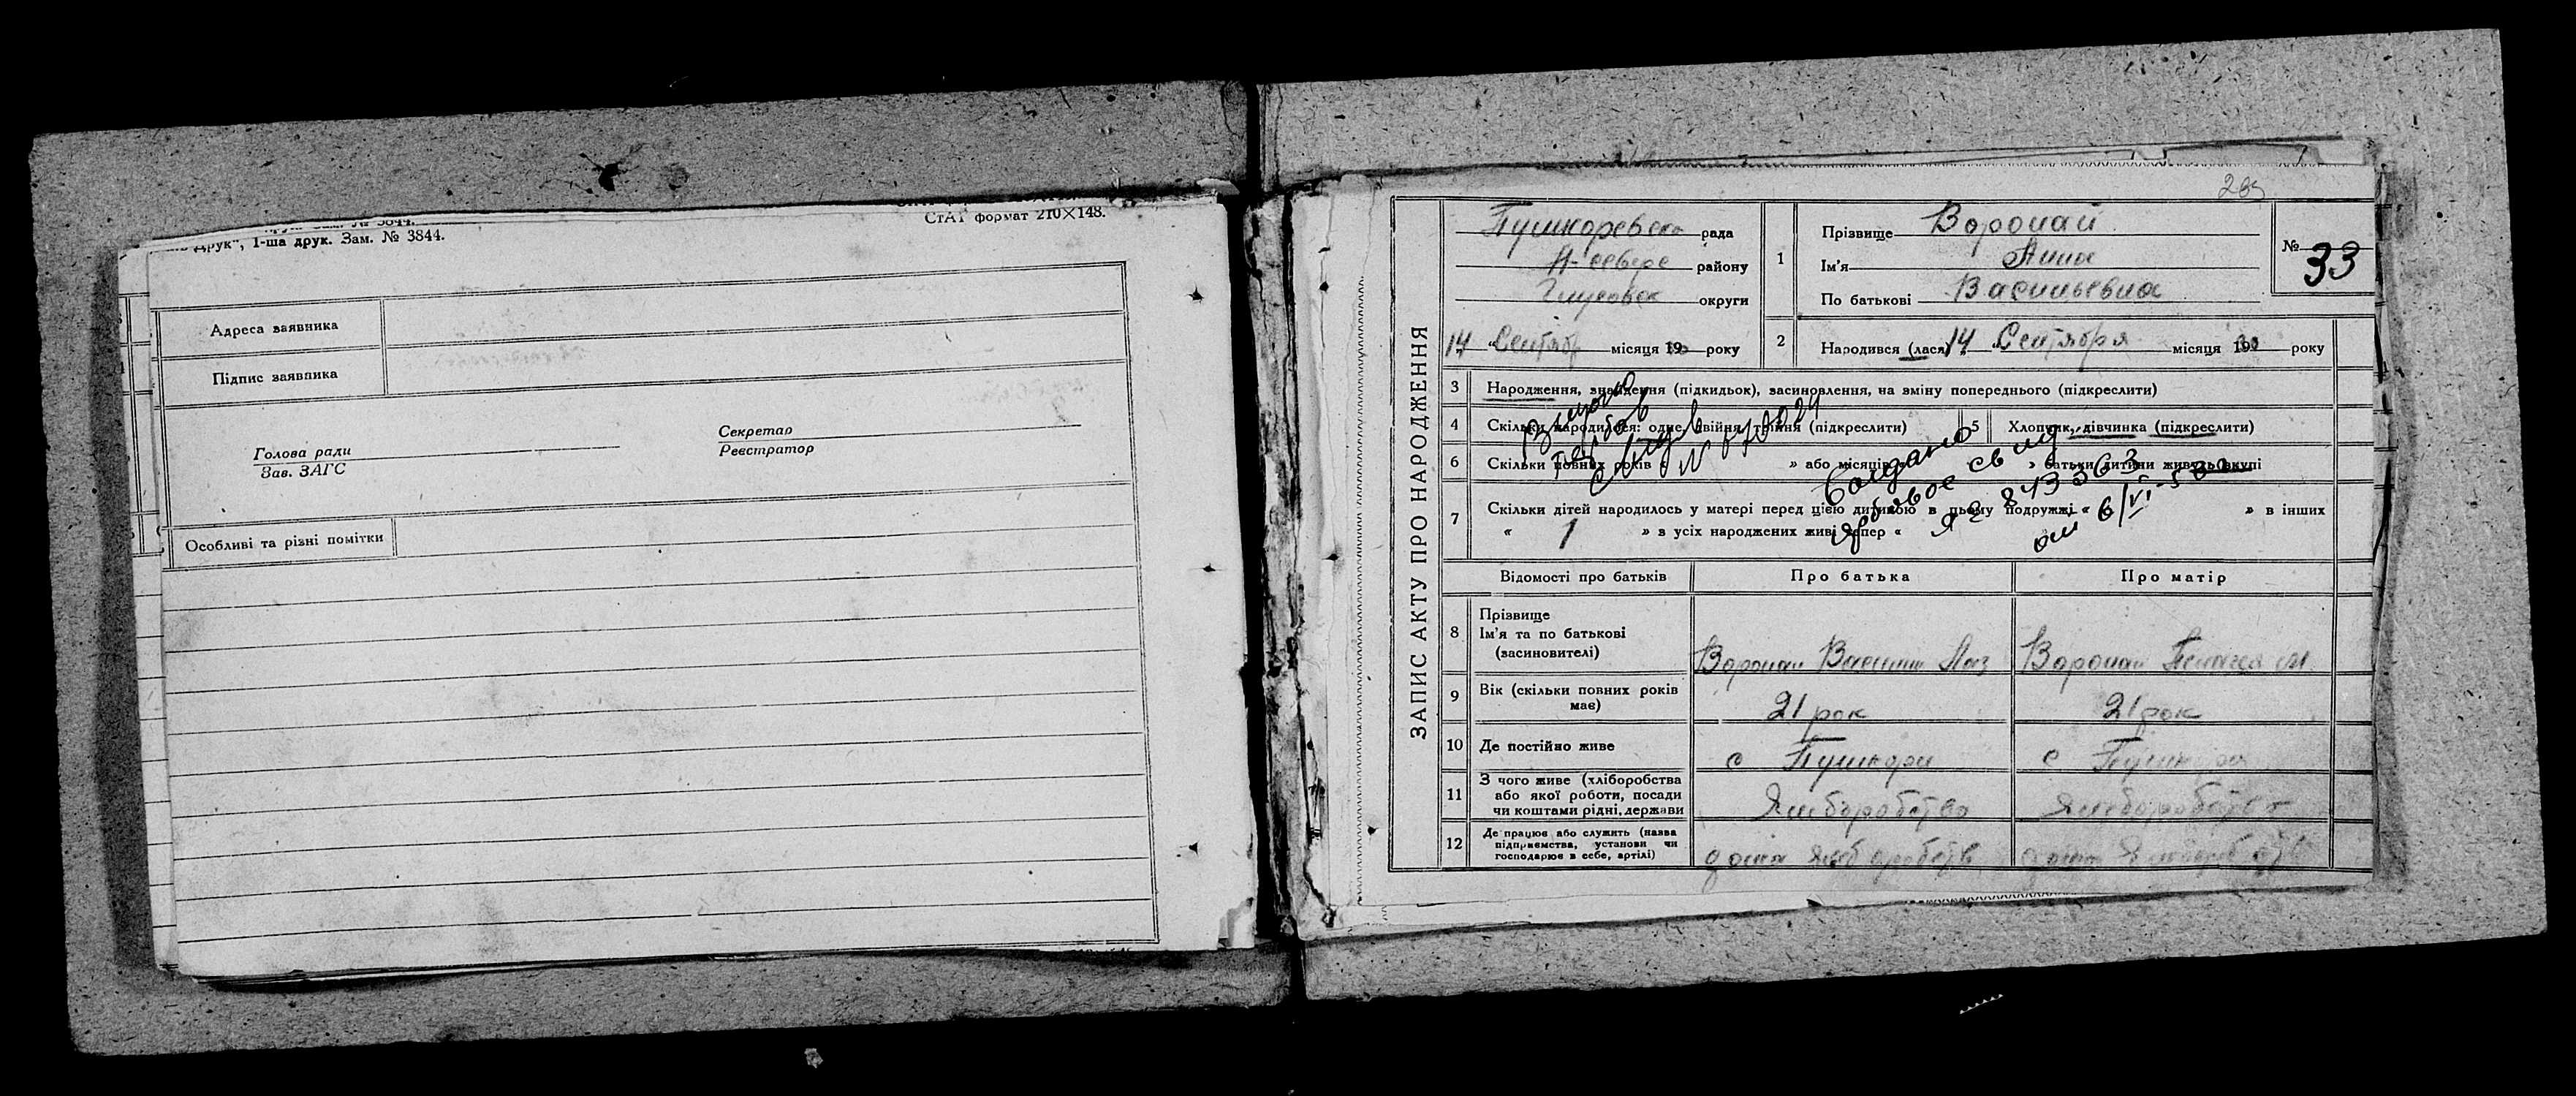 СтАТ формат 210×148.
друк", 1-ша друк. Зам. № 3844.
Адреса заявника
Підпис заявника
Голова ради
Зав. ЗАГС
Секретар
Реєстратор
Особливі та різні помітки
ЗАПИС АКТУ ПРО НАРОДЖЕННЯ
Пушкаревско рада
Н-севере району
Глуховск округи
14 Сентябр місяця 1930 року
1
Прізвище Воропай
Ім'я Анна
По батькові Васильевна
№ 33
2 Народився (лася) 14 Сентября місяця 1930 року
3 Народження, знайдення (підкидьок), засиновлення, на зміну попереднього (підкреслити)
4 Скільки народилося: одне, двійня, трійня (підкреслити)
5 Хлопчик, дівчинка (підкреслити)
6 Скільки повних років « » або місяців « » батьки дитини живуть вкупі
7 Скільки дітей народилось у матері перед цією дитиною в цьому подружжі « » в інших
« 1 » в усіх народжених живі тепер «
свид
6/VI-5
Відомості про батьків Про батька Про матір
8 Прізвище
Ім'я та по батькові
(засиновителі)
Воропай Василий Лаз
Воропай
9 Вік (скільки повних років
має)
21 рок 21 рок
10 Де постійно живе с Пушкари с Пушкари
11 З чого живе (хліборобства
або якої роботи, посади
чи коштами рідні, держави
Хліборобство Хліборобство
12 Де працює або служить (назва
підприємства, установи чи
господарює в себе, артілі)